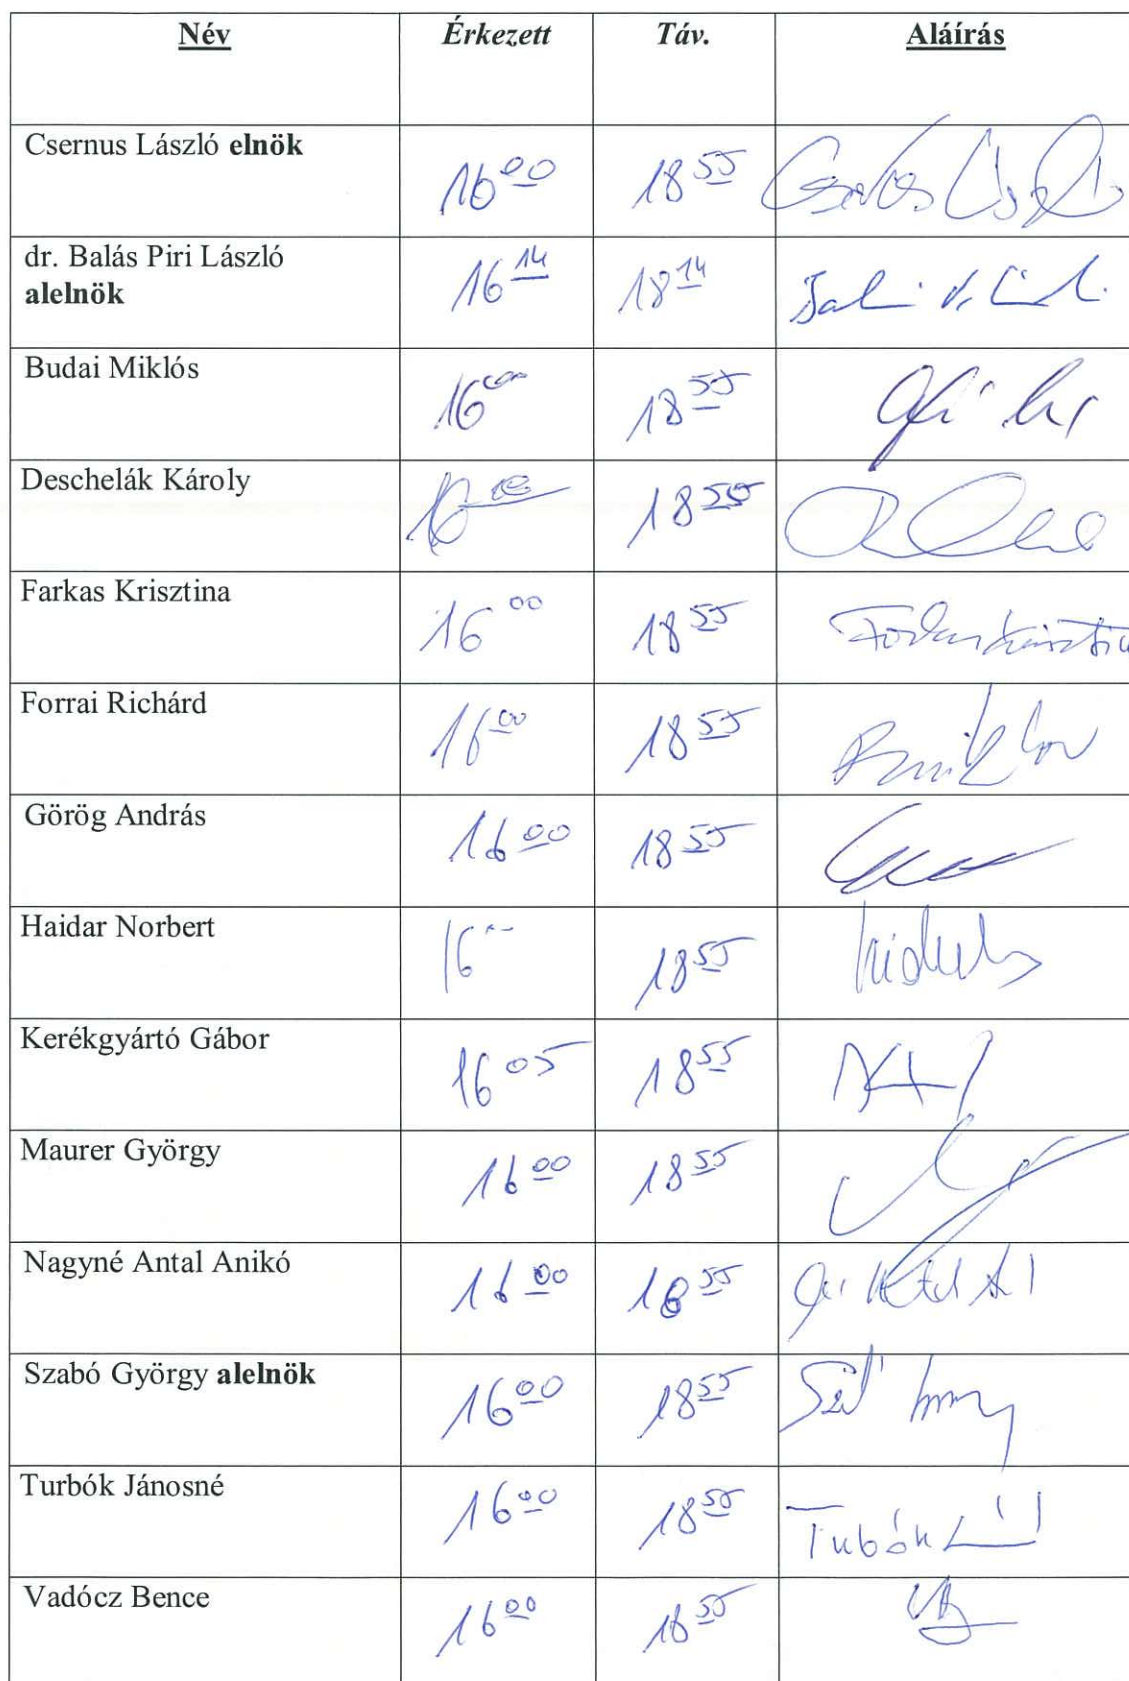 Név Érkezett Táv. Aláírás
Csernus László elnök 16 00 18 55
dr. Balás Piri László 16 14 18 14
alelnök
Budai Miklós 16 18 55
Deschelák Károly 18 55
Farkas Krisztina 16 00 18 55 Farkas Krisztina
Forrai Richárd 16 00 18 55
Görög András 16 00 18 55
Haidar Norbert 16 18 55
Kerékgyártó Gábor 16 05 18 55
Maurer György 16 00 18 55
Nagyné Antal Anikó 16 00 18 55
Szabó György alelnök 16 00 18 55
Turbók Jánosné 16 00 18 55
Vadócz Bence 16 00 16 55